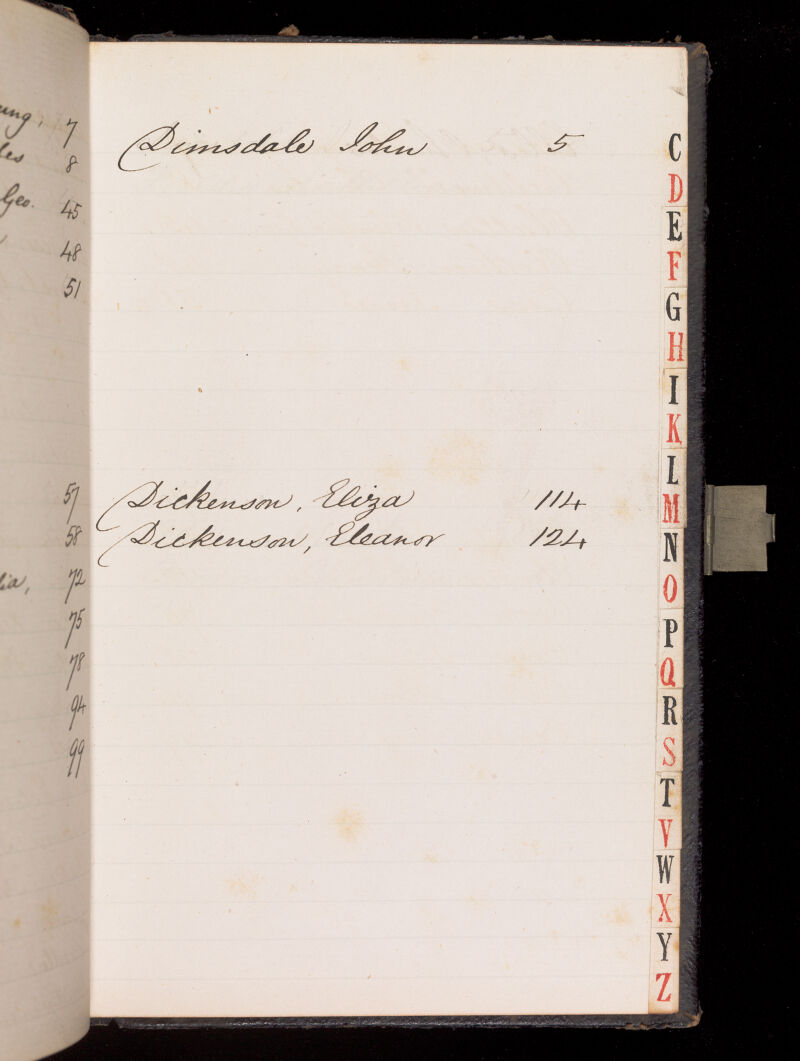 7
8
Geo. 45
48
51
57
58
72
75
78
94
99
Dimsdale John 5
Dickenson, Eliza 114
Dickenson, Eleanor 124
C
D
E
F
G
H
I
K
L
M
N
O
P
Q
R
S
T
V
W
X
Y
Z